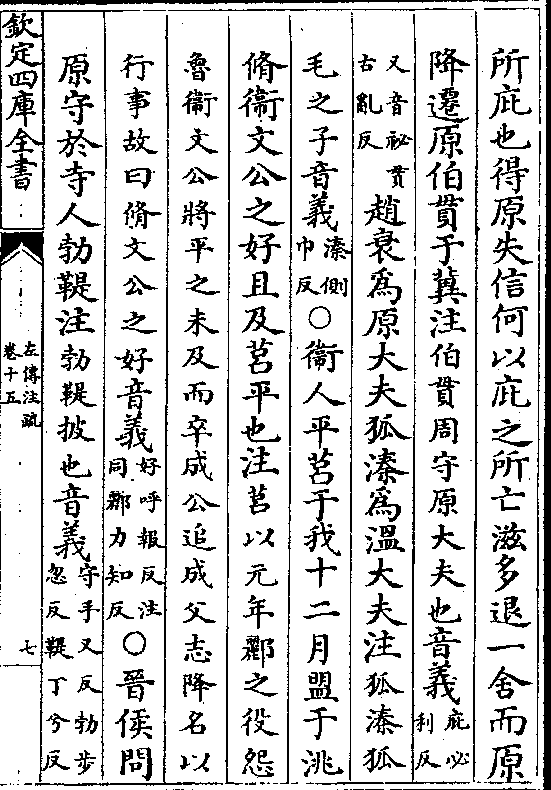 所庇也得原失信何以庇之所亡滋多退一舍而原
降遷原伯貫于冀注伯貫周守原大夫也音義庇必利反
又音祕貫古亂反趙衰為原大夫狐溱為溫大夫注狐溱狐
毛之子音義溱側巾反〇衞人平莒于我十二月盟于洮
脩衞文公之好且及莒平也注莒以元年酈之役怨
魯衞文公將平之未及而卒成公追成父志降名以
行事故曰脩文公之好音義好呼報反注同酈力知反〇晉侯問
原守於寺人勃鞮注勃鞮披也音義守手又反勃步忽反鞮丁兮反
欽定四庫全書
左傳注疏
卷十五
七